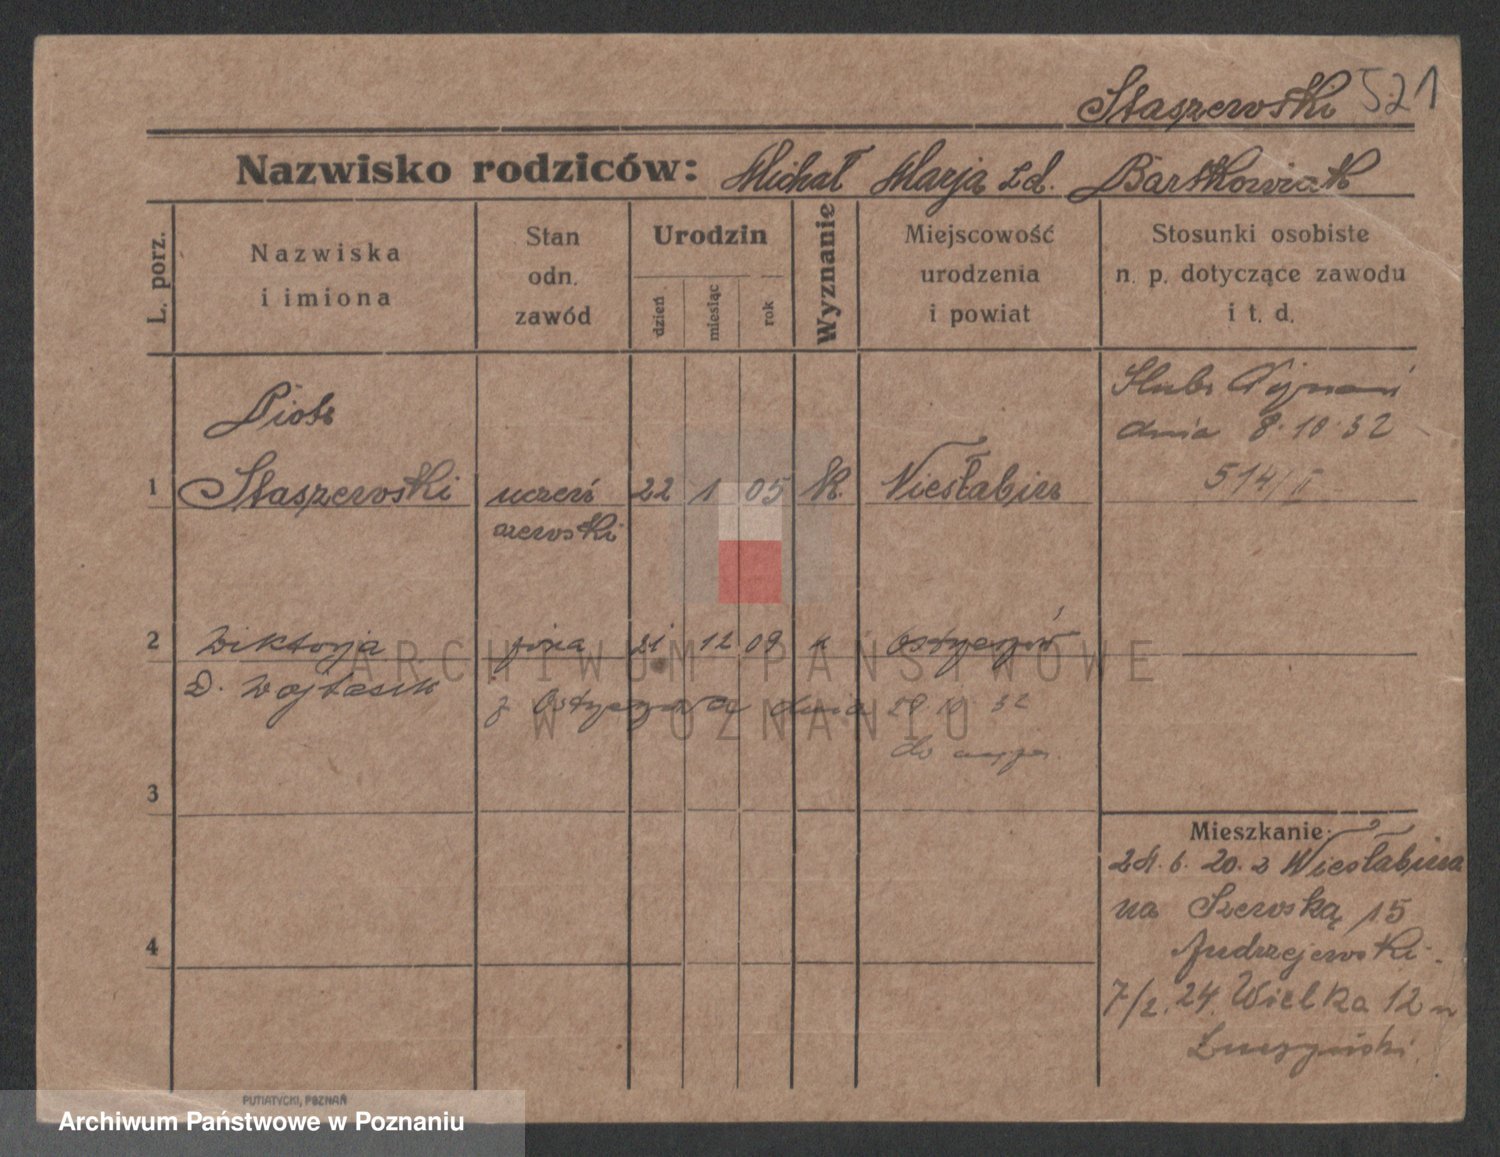 Staszewski 521
Nazwisko rodziców: Michał Marja z d. Bartkowiak
L. porz.
Nazwiska
i imiona
Stan
odn.
zawód
Urodzin
dzień
miesiąc
rok
Wyznanie
Miejscowość
urodzenia
i powiat
Stosunki osobiste
n. p. dotyczące zawodu
i t. d.
Piotr
1 Staszewski uczeń 22 1 05 K. Niesłabin
szewski
Ślub
dnia 8.10.32
514/II
2 Wiktorja żona 21 12 09 k
D. Wojtasik
z dnia 29 10 32
do
3
4
Mieszkanie:
24. 6. 20. z Niesłabina
na Szewską 15
Andrzejewski.
7/2. 24. Wielka 12
PUTIATYCKI, POZNAŃ
ARCHIWUM PAŃSTWOWE
W POZNANIU
Archiwum Państwowe w Poznaniu